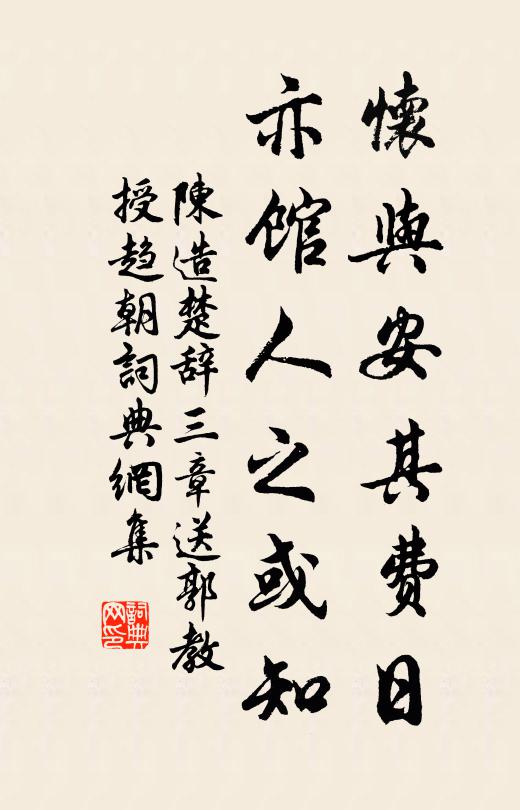 懷與安其費日
亦館人之或知
陳造楚辭三章送郭教
授趨朝詞典網集
詞典網印